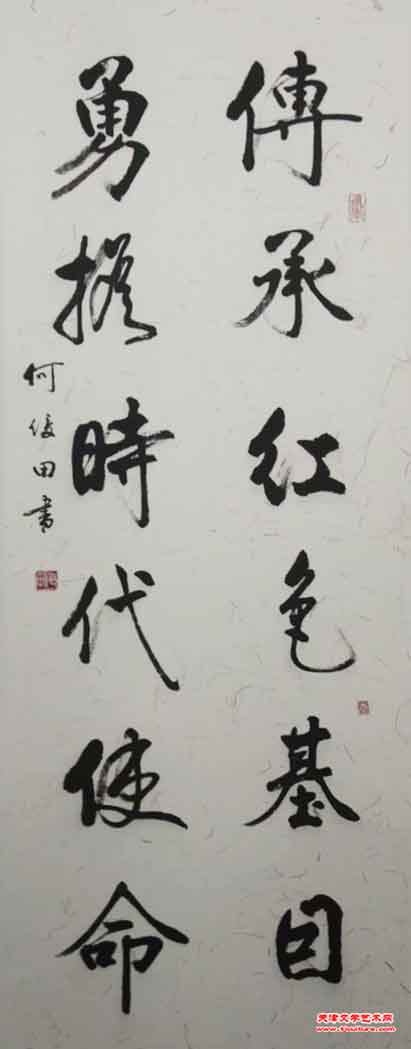 傳承红色基因
勇擔時代使命
何俊田書
天津文学艺术网
www.tjculture.com